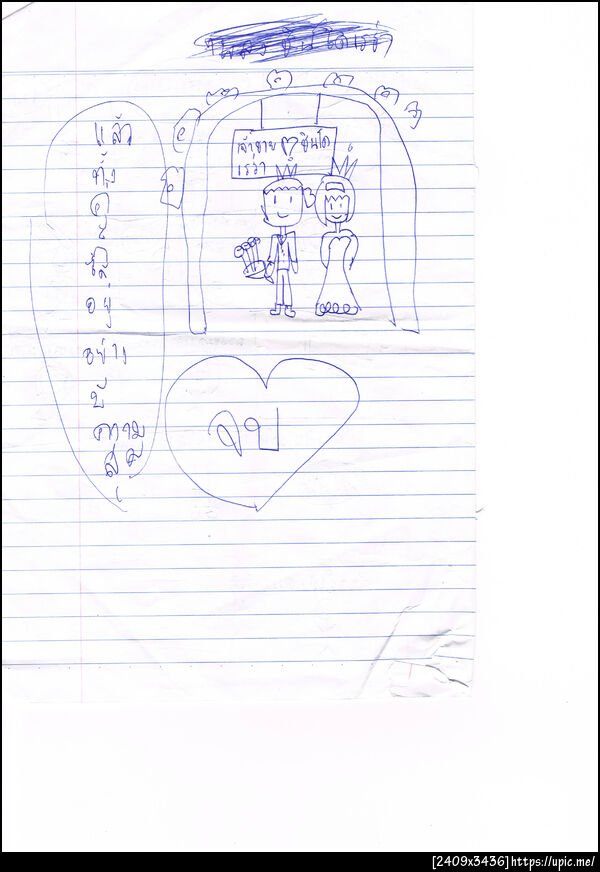 เจ้าชาย ซินเด
เรร่า
แล้ว
ทั้ง
คู่
ได้
อยู่
อย่าง
มี
ความ
สุข
จบ
[2409x3436]https://upic.me/